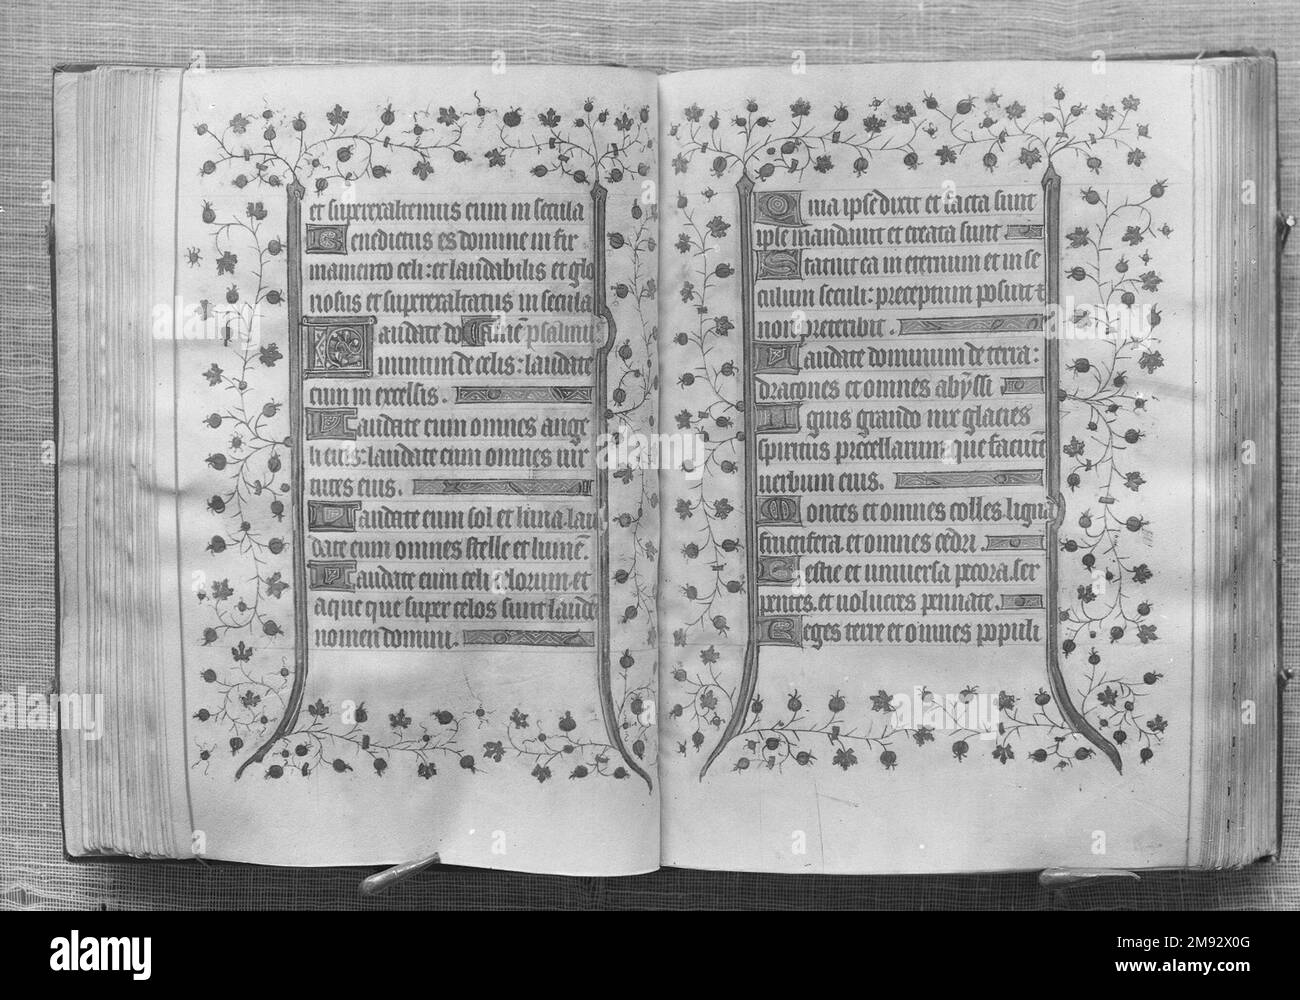 et superexaltemus eum in secula
Benedictus es domine in fir
mamento celi: et laudabilis et glo
riosus et superexaltatus in secula
Laudate do
psalmus
minum de celis: laudate
eum in excelsis.
Laudate eum omnes ange
li eius: laudate eum omnes uir
tutes eius.
Laudate eum sol et luna. lau
date eum omnes stelle et lumen.
Laudate eum celi celorum. et
aque que super celos sunt laudent
nomen domini.
Quia ipse dixit et facta sunt
ipse mandauit et creata sunt
Statuit ea in eternum et in se
culum seculi: preceptum posuit et
non preteribit.
Laudate dominum de terra:
dracones et omnes abyssi
Ignis grando nix glacies
spiritus procellarum que faciunt
uerbum eius.
Montes et omnes colles. ligna
fructifera. et omnes cedri.
Bestie et uniuersa pecora. ser
pentes. et uolucres pennate.
Reges terre et omnes populi
alamy
Image ID: 2M92X0G
www.alamy.com